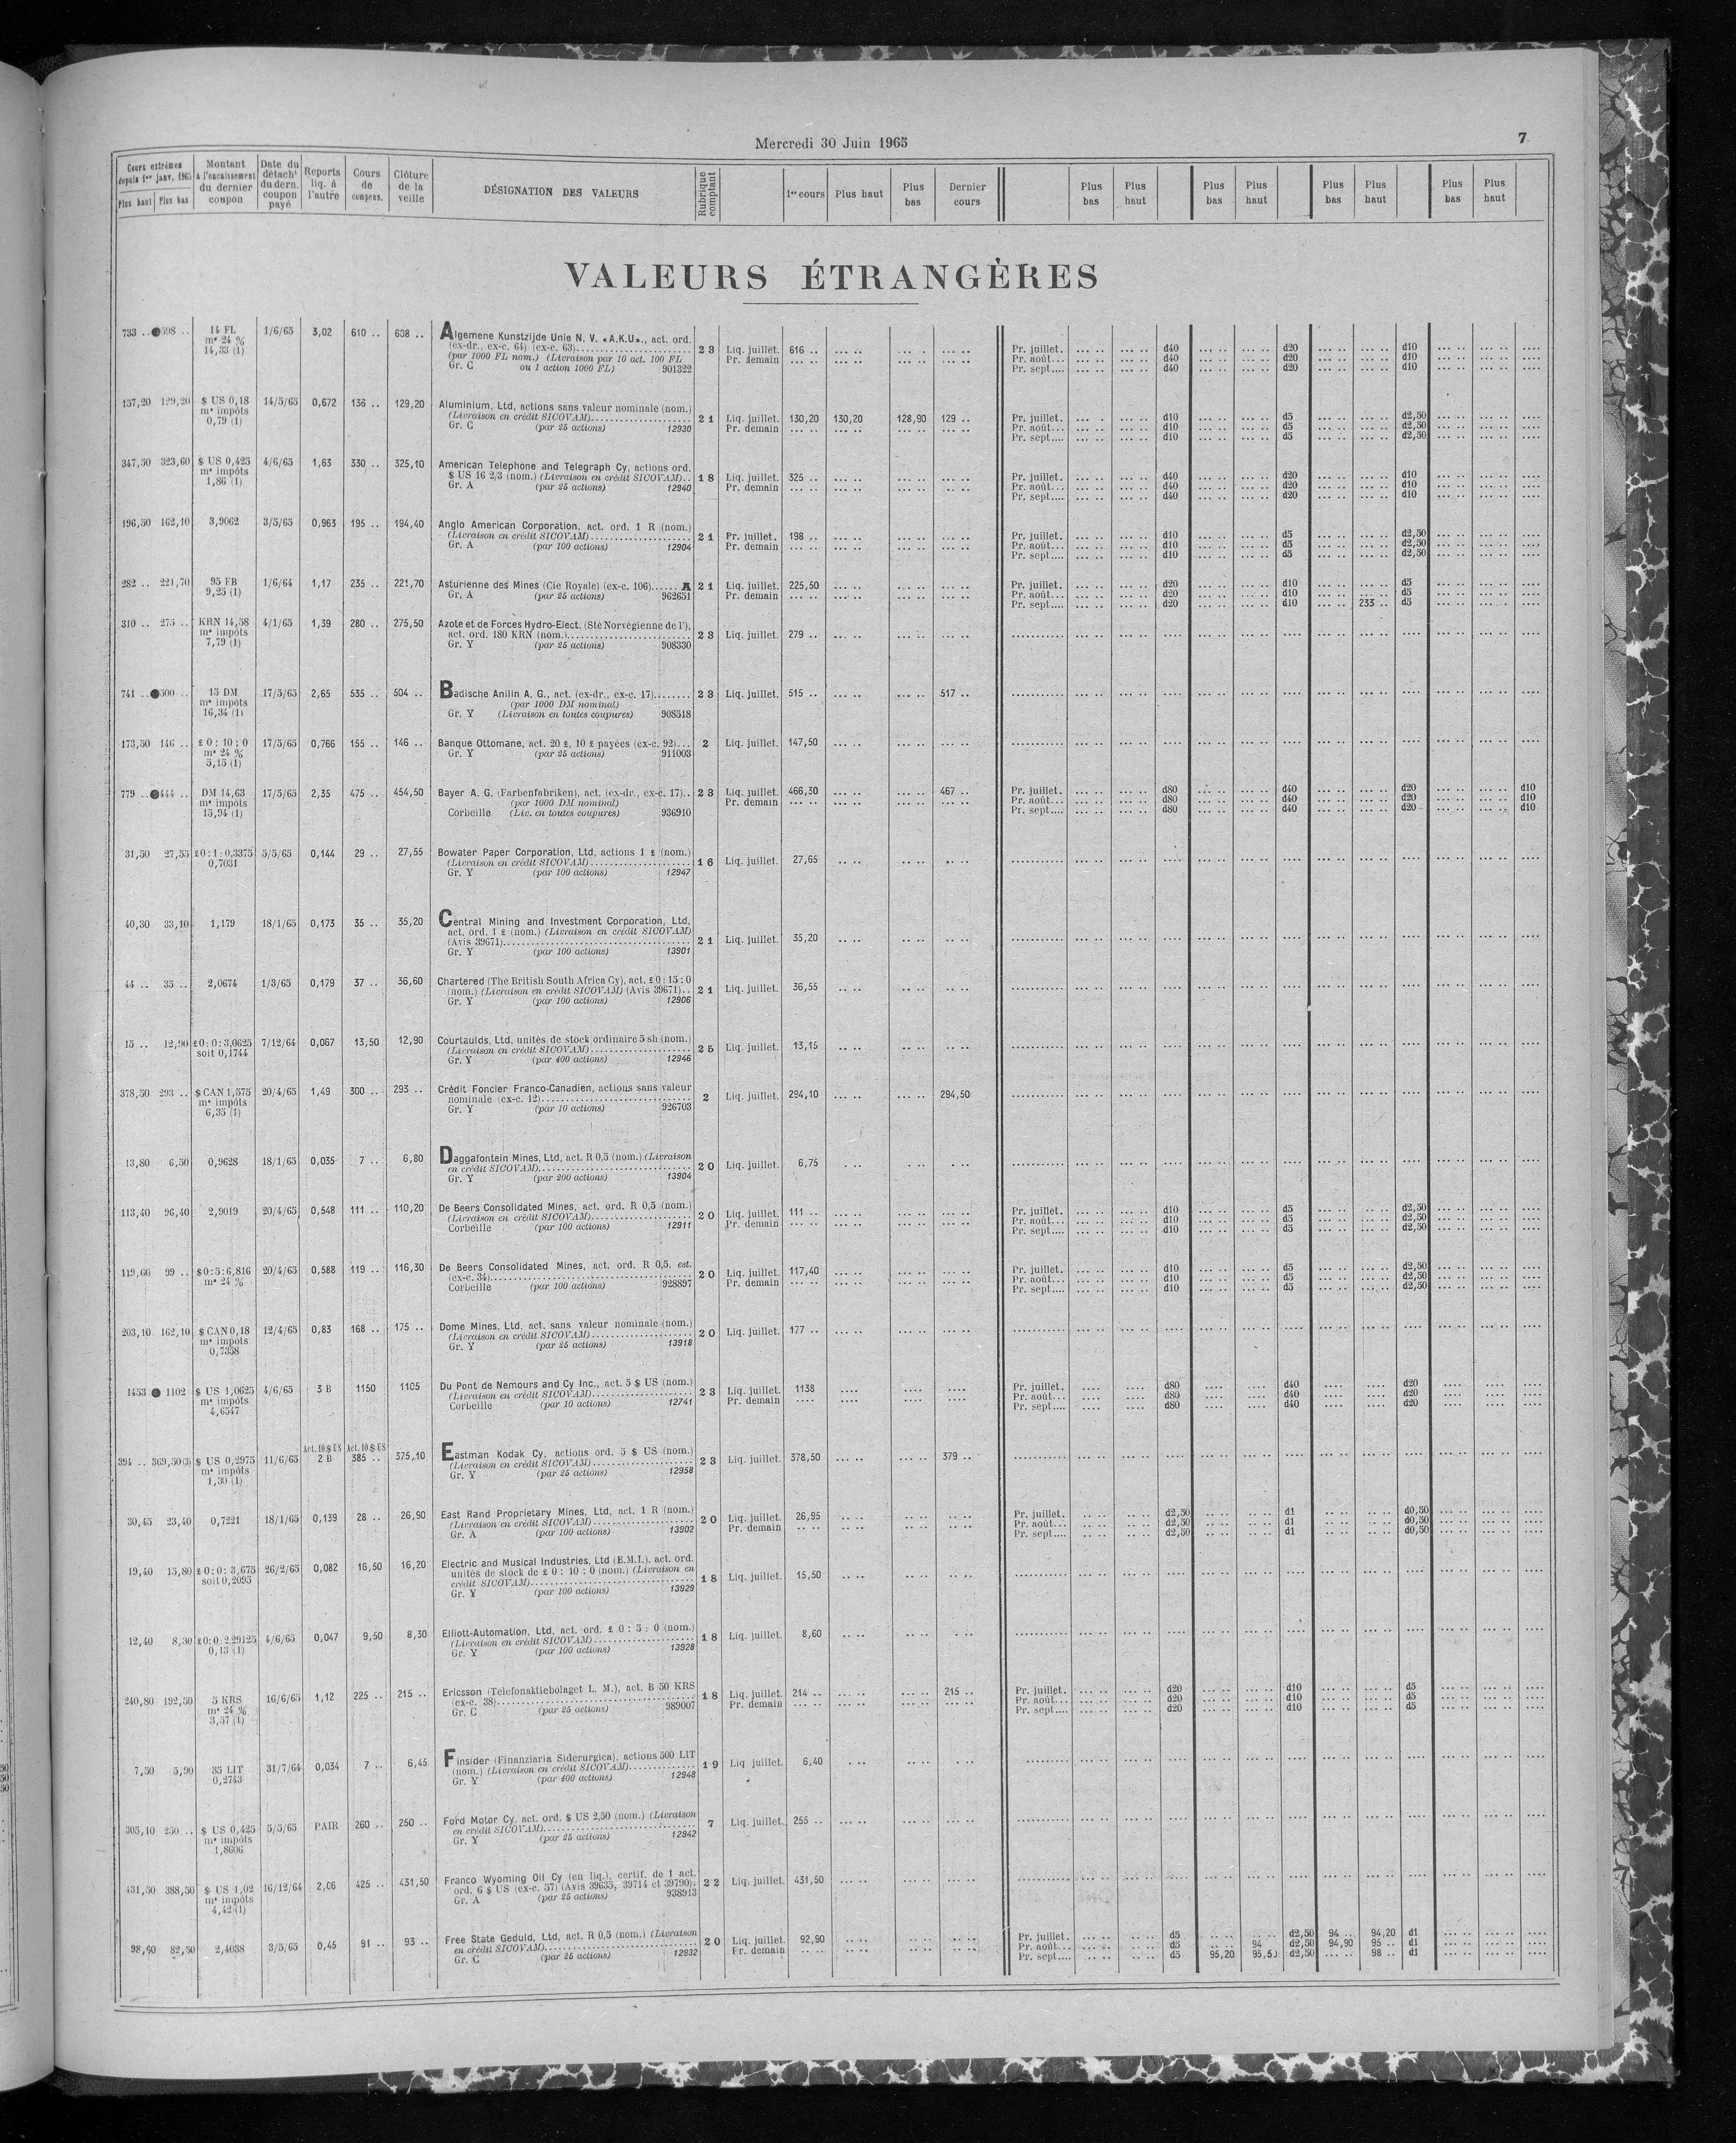 Mercredi 30 Juin 1965
7
Cours extrêmes depuis 1er janv. 1965 Plus haut Plus bas | Montant à l'encaissement du dernier coupon | Date du détacht du dern. coupon payé | Reports liq. à l'autre | Cours de compens. | Clôture de la veille | DÉSIGNATION DES VALEURS | Rubrique comptant | 1er cours | Plus haut | Plus bas | Dernier cours | Plus bas | Plus haut | Plus bas | Plus haut | Plus bas | Plus haut | Plus bas | Plus haut
VALEURS ÉTRANGÈRES
733 .. ●598 .. 14 FL 1/6/65 3,02 610 .. 608 .. Algemene Kunstzijde Unie N. V. «A.K.U»., act. ord.
me 24 % (ex-dr., ex-c. 64) (ex-c. 63) 23 Liq. juillet. 616 .. Pr. juillet. d40 d20 d10
14,33 (1) (par 1000 FL nom.) (Livraison par 10 act. 100 FL Pr. demain Pr. août... d40 d20 d10
Gr. C ou 1 action 1000 FL) 901322 Pr. sept.... d40 d20 d10
157,20 129,20 $ US 0,18 14/5/65 0,672 136 .. 129,20 Aluminium, Ltd, actions sans valeur nominale (nom.)
me impôts (Livraison en crédit SICOVAM) 21 Liq. juillet. 130,20 130,20 128,90 129 .. Pr. juillet. d10 d5 d2,50
0,79 (1) Gr. C (par 25 actions) 12930 Pr. demain Pr. août... d10 d5 d2,50
Pr. sept.... d10 d5 d2,50
347,50 323,60 $ US 0,425 4/6/65 1,63 330 .. 325,10 American Telephone and Telegraph Cy, actions ord.
me impôts $ US 16 2/3 (nom.) (Livraison en crédit SICOVAM).. 18 Liq. juillet. 325 .. Pr. juillet. d40 d20 d10
1,86 (1) Gr. A (par 25 actions) 12940 Pr. demain Pr. août... d40 d20 d10
Pr. sept.... d40 d20 d10
196,50 162,10 3,9062 3/5/65 0,963 195 .. 194,40 Anglo American Corporation, act. ord. 1 R (nom.)
(Livraison en crédit SICOVAM) 21 Pr. juillet. 198 .. Pr. juillet. d10 d5 d2,50
Gr. A (par 100 actions) 12904 Pr. demain Pr. août... d10 d5 d2,50
Pr. sept.... d10 d5 d2,50
282 .. 221,70 95 FB 1/6/64 1,17 235 .. 221,70 Asturienne des Mines (Cie Royale) (ex-c. 106) A 21 Liq. juillet. 225,50 Pr. juillet. d20 d10 d5
9,25 (1) Gr. A (par 25 actions) 962651 Pr. demain Pr. août... d20 d10 d5
Pr. sept.... d20 d10 233 .. d5
310 .. 275 .. KRN 14,58 4/1/65 1,39 280 .. 275,50 Azote et de Forces Hydro-Elect. (Sté Norvégienne de l'),
me impôts act. ord. 180 KRN (nom.) 23 Liq. juillet. 279 ..
7,79 (1) Gr. Y (par 25 actions) 908330
741 .. ●500 .. 15 DM 17/5/65 2,65 535 .. 504 .. Badische Anilin A. G., act. (ex-dr., ex-c. 17) 23 Liq. juillet. 515 .. 517 ..
me impôts (par 1000 DM nominal)
16,34 (1) Gr. Y (Livraison en toutes coupures) 908518
173,50 146 .. £ 0 : 10 : 0 17/5/65 0,766 155 .. 146 .. Banque Ottomane, act. 20 £, 10 £ payées (ex-c. 92)... 2 Liq. juillet. 147,50
me 24 % Gr. Y (par 25 actions) 911003
5,15 (1)
779 .. ●444 .. DM 14,63 17/5/65 2,35 475 .. 454,50 Bayer A. G. (Farbenfabriken), act. (ex-dr., ex-c. 17).. 23 Liq. juillet. 466,30 467 .. Pr. juillet. d80 d40 d20 d10
me impôts (par 1000 DM nominal) Pr. demain Pr. août... d80 d40 d20 d10
15,94 (1) Corbeille (Liv. en toutes coupures) 936910 Pr. sept.... d80 d40 d20 d10
31,50 27,55 £0:1:0,3375 5/5/65 0,144 29 .. 27,55 Bowater Paper Corporation, Ltd, actions 1 £ (nom.)
0,7031 (Livraison en crédit SICOVAM) 16 Liq. juillet. 27,65
Gr. Y (par 100 actions) 12947
40,30 33,10 1,179 18/1/65 0,173 35 .. 35,20 Central Mining and Investment Corporation, Ltd,
act. ord. 1 £ (nom.) (Livraison en crédit SICOVAM)
(Avis 39671) 21 Liq. juillet. 35,20
Gr. Y (par 100 actions) 13901
44 .. 35 .. 2,0674 1/3/65 0,179 37 .. 36,60 Chartered (The British South Africa Cy), act. £ 0:15:0
(nom.) (Livraison en crédit SICOVAM) (Avis 39671).. 21 Liq. juillet. 36,55
Gr. Y (par 100 actions) 12906
15 .. 12,90 £0:0:3,0625 7/12/64 0,067 13,50 12,90 Courtaulds, Ltd, unités de stock ordinaire 5 sh (nom.)
soit 0,1744 (Livraison en crédit SICOVAM) 25 Liq. juillet. 13,15
Gr. Y (par 400 actions) 12946
378,50 293 .. $ CAN 1,575 20/4/65 1,49 300 .. 293 .. Crédit Foncier Franco-Canadien, actions sans valeur
me impôts nominale (ex-c. 12) 2 Liq. juillet. 294,10 294,50
6,35 (1) Gr. Y (par 10 actions) 926703
13,80 6,50 0,9628 18/1/65 0,035 7 .. 6,80 Daggafontein Mines, Ltd, act. R 0,5 (nom.) (Livraison
en crédit SICOVAM) 20 Liq. juillet. 6,75
Gr. Y (par 200 actions) 13904
113,40 96,40 2,9019 20/4/65 0,548 111 .. 110,20 De Beers Consolidated Mines, act. ord. R 0,5 (nom.)
(Livraison en crédit SICOVAM) 20 Liq. juillet. 111 .. Pr. juillet. d10 d5 d2,50
Corbeille (par 100 actions) 12911 Pr. demain Pr. août... d10 d5 d2,50
Pr. sept.... d10 d5 d2,50
119,60 99 .. $0:5:6,816 20/4/65 0,588 119 .. 116,30 De Beers Consolidated Mines, act. ord. R 0,5, est.
me 24 % (ex-c. 34) 20 Liq. juillet. 117,40 Pr. juillet. d10 d5 d2,50
Corbeille (par 100 actions) 928897 Pr. demain Pr. août... d10 d5 d2,50
Pr. sept.... d10 d5 d2,50
203,10 162,10 $ CAN 0,18 12/4/65 0,83 168 .. 175 .. Dome Mines, Ltd, act. sans valeur nominale (nom.)
me impôts (Livraison en crédit SICOVAM) 20 Liq. juillet. 177 ..
0,7358 Gr. Y (par 25 actions) 13918
1453 ● 1102 $ US 1,0625 4/6/65 3 B 1150 1105 Du Pont de Nemours and Cy Inc., act. 5 $ US (nom.)
me impôts (Livraison en crédit SICOVAM) 23 Liq. juillet. 1138 Pr. juillet. d80 d40 d20
4,6547 Corbeille (par 10 actions) 12741 Pr. demain Pr. août... d80 d40 d20
Pr. sept.... d80 d40 d20
Act. 10 $ US Act. 10 $ US
394 .. 369,50(3) $ US 0,2975 11/6/65 2 B 385 .. 375,10 Eastman Kodak Cy, actions ord. 5 $ US (nom.)
me impôts (Livraison en crédit SICOVAM) 23 Liq. juillet. 378,50 379 ..
1,30 (1) Gr. Y (par 25 actions) 12958
30,45 23,40 0,7221 18/1/65 0,139 28 .. 26,90 East Rand Proprietary Mines, Ltd, act. 1 R (nom.)
(Livraison en crédit SICOVAM) 20 Liq. juillet. 26,95 Pr. juillet. d2,50 d1 d0,50
Gr. A (par 100 actions) 13902 Pr. demain Pr. août... d2,50 d1 d0,50
Pr. sept.... d2,50 d1 d0,50
19,40 15,80 £0:0:3,675 26/2/65 0,082 16,50 16,20 Electric and Musical Industries, Ltd (E.M.I.), act. ord.
soit 0,2095 unités de stock de £ 0 : 10 : 0 (nom.) (Livraison en
crédit SICOVAM) 18 Liq. juillet. 15,50
Gr. Y (par 100 actions) 13929
12,40 8,30 £0:0:2,29125 4/6/65 0,047 9,50 8,30 Elliott-Automation, Ltd, act. ord. £ 0 : 5 : 0 (nom.)
0,13 (1) (Livraison en crédit SICOVAM) 18 Liq. juillet. 8,60
Gr. Y (par 100 actions) 13928
240,80 192,50 5 KRS 16/6/65 1,12 225 .. 215 .. Ericsson (Telefonaktiebolaget L. M.), act. B 50 KRS
me 24 % (ex-c. 38) 18 Liq. juillet. 214 .. 215 .. Pr. juillet. d20 d10 d5
3,57 (1) Gr. C (par 25 actions) 989007 Pr. demain Pr. août... d20 d10 d5
Pr. sept.... d20 d10 d5
7,50 5,90 35 LIT 31/7/64 0,034 7 .. 6,45 Finsider (Finanziaria Siderurgica), actions 500 LIT
0,2743 (nom.) (Livraison en crédit SICOVAM) 19 Liq. juillet. 6,40
Gr. Y (par 400 actions) 12948
305,10 250 .. $ US 0,425 5/5/65 PAIR 260 .. 250 .. Ford Motor Cy, act. ord. $ US 2,50 (nom.) (Livraison
me impôts en crédit SICOVAM) 7 Liq. juillet. 255 ..
1,8606 Gr. Y (par 25 actions) 12942
431,50 388,50 $ US 1,02 16/12/64 2,06 425 .. 431,50 Franco Wyoming Oil Cy (en liq.), certif. de 1 act.
me impôts ord. 6 $ US (ex-c. 57) (Avis 39635, 39714 et 39790). 22 Liq. juillet. 431,50
4,42 (1) Gr. A (par 25 actions) 938913
98,60 82,50 2,4038 3/5/65 0,45 91 .. 93 .. Free State Geduld, Ltd, act. R 0,5 (nom.) (Livraison
en crédit SICOVAM) 20 Liq. juillet. 92,90 Pr. juillet. d5 d2,50 94 .. 94,20 d1
Gr. C (par 25 actions) 12932 Pr. demain Pr. août... d5 94 .. d2,50 94,90 95 .. d1
Pr. sept.... d5 95,20 95,50 d2,50 98 .. d1